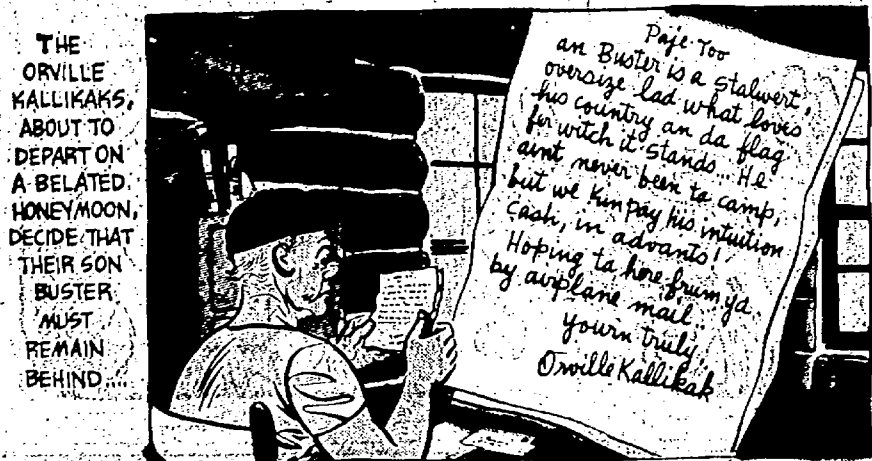 THE
ORVILLE
KALLIKAKS,
ABOUT TO
DEPART ON
A BELATED
HONEYMOON,
DECIDE THAT
THEIR SON
BUSTER
MUST
REMAIN
BEHIND...
Paje Too
an Buster is a stalwert,
oversize lad what loves
his country an da flag
fer witch it stands... He
aint never been to camp,
but we kin pay his intuition
cash, in advants!
Hoping ta here frum ya
by airplane mail..
yourn truly,
Orville Kallikak